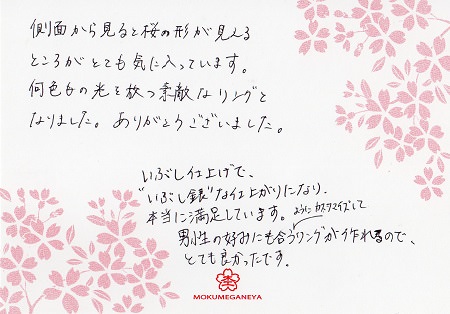 側面から見ると桜の形が見える
ところがとても気に入っています。
何色もの光を放つ素敵なリングと
なりました。ありがとうございました。
いぶし仕上げで、
"いぶし銀"な仕上がりになり、
本当に満足しています。
男性の好みにも合うようにカスタマイズして
リングが作れるので、
とても良かったです。
MOKUMEGANEYA